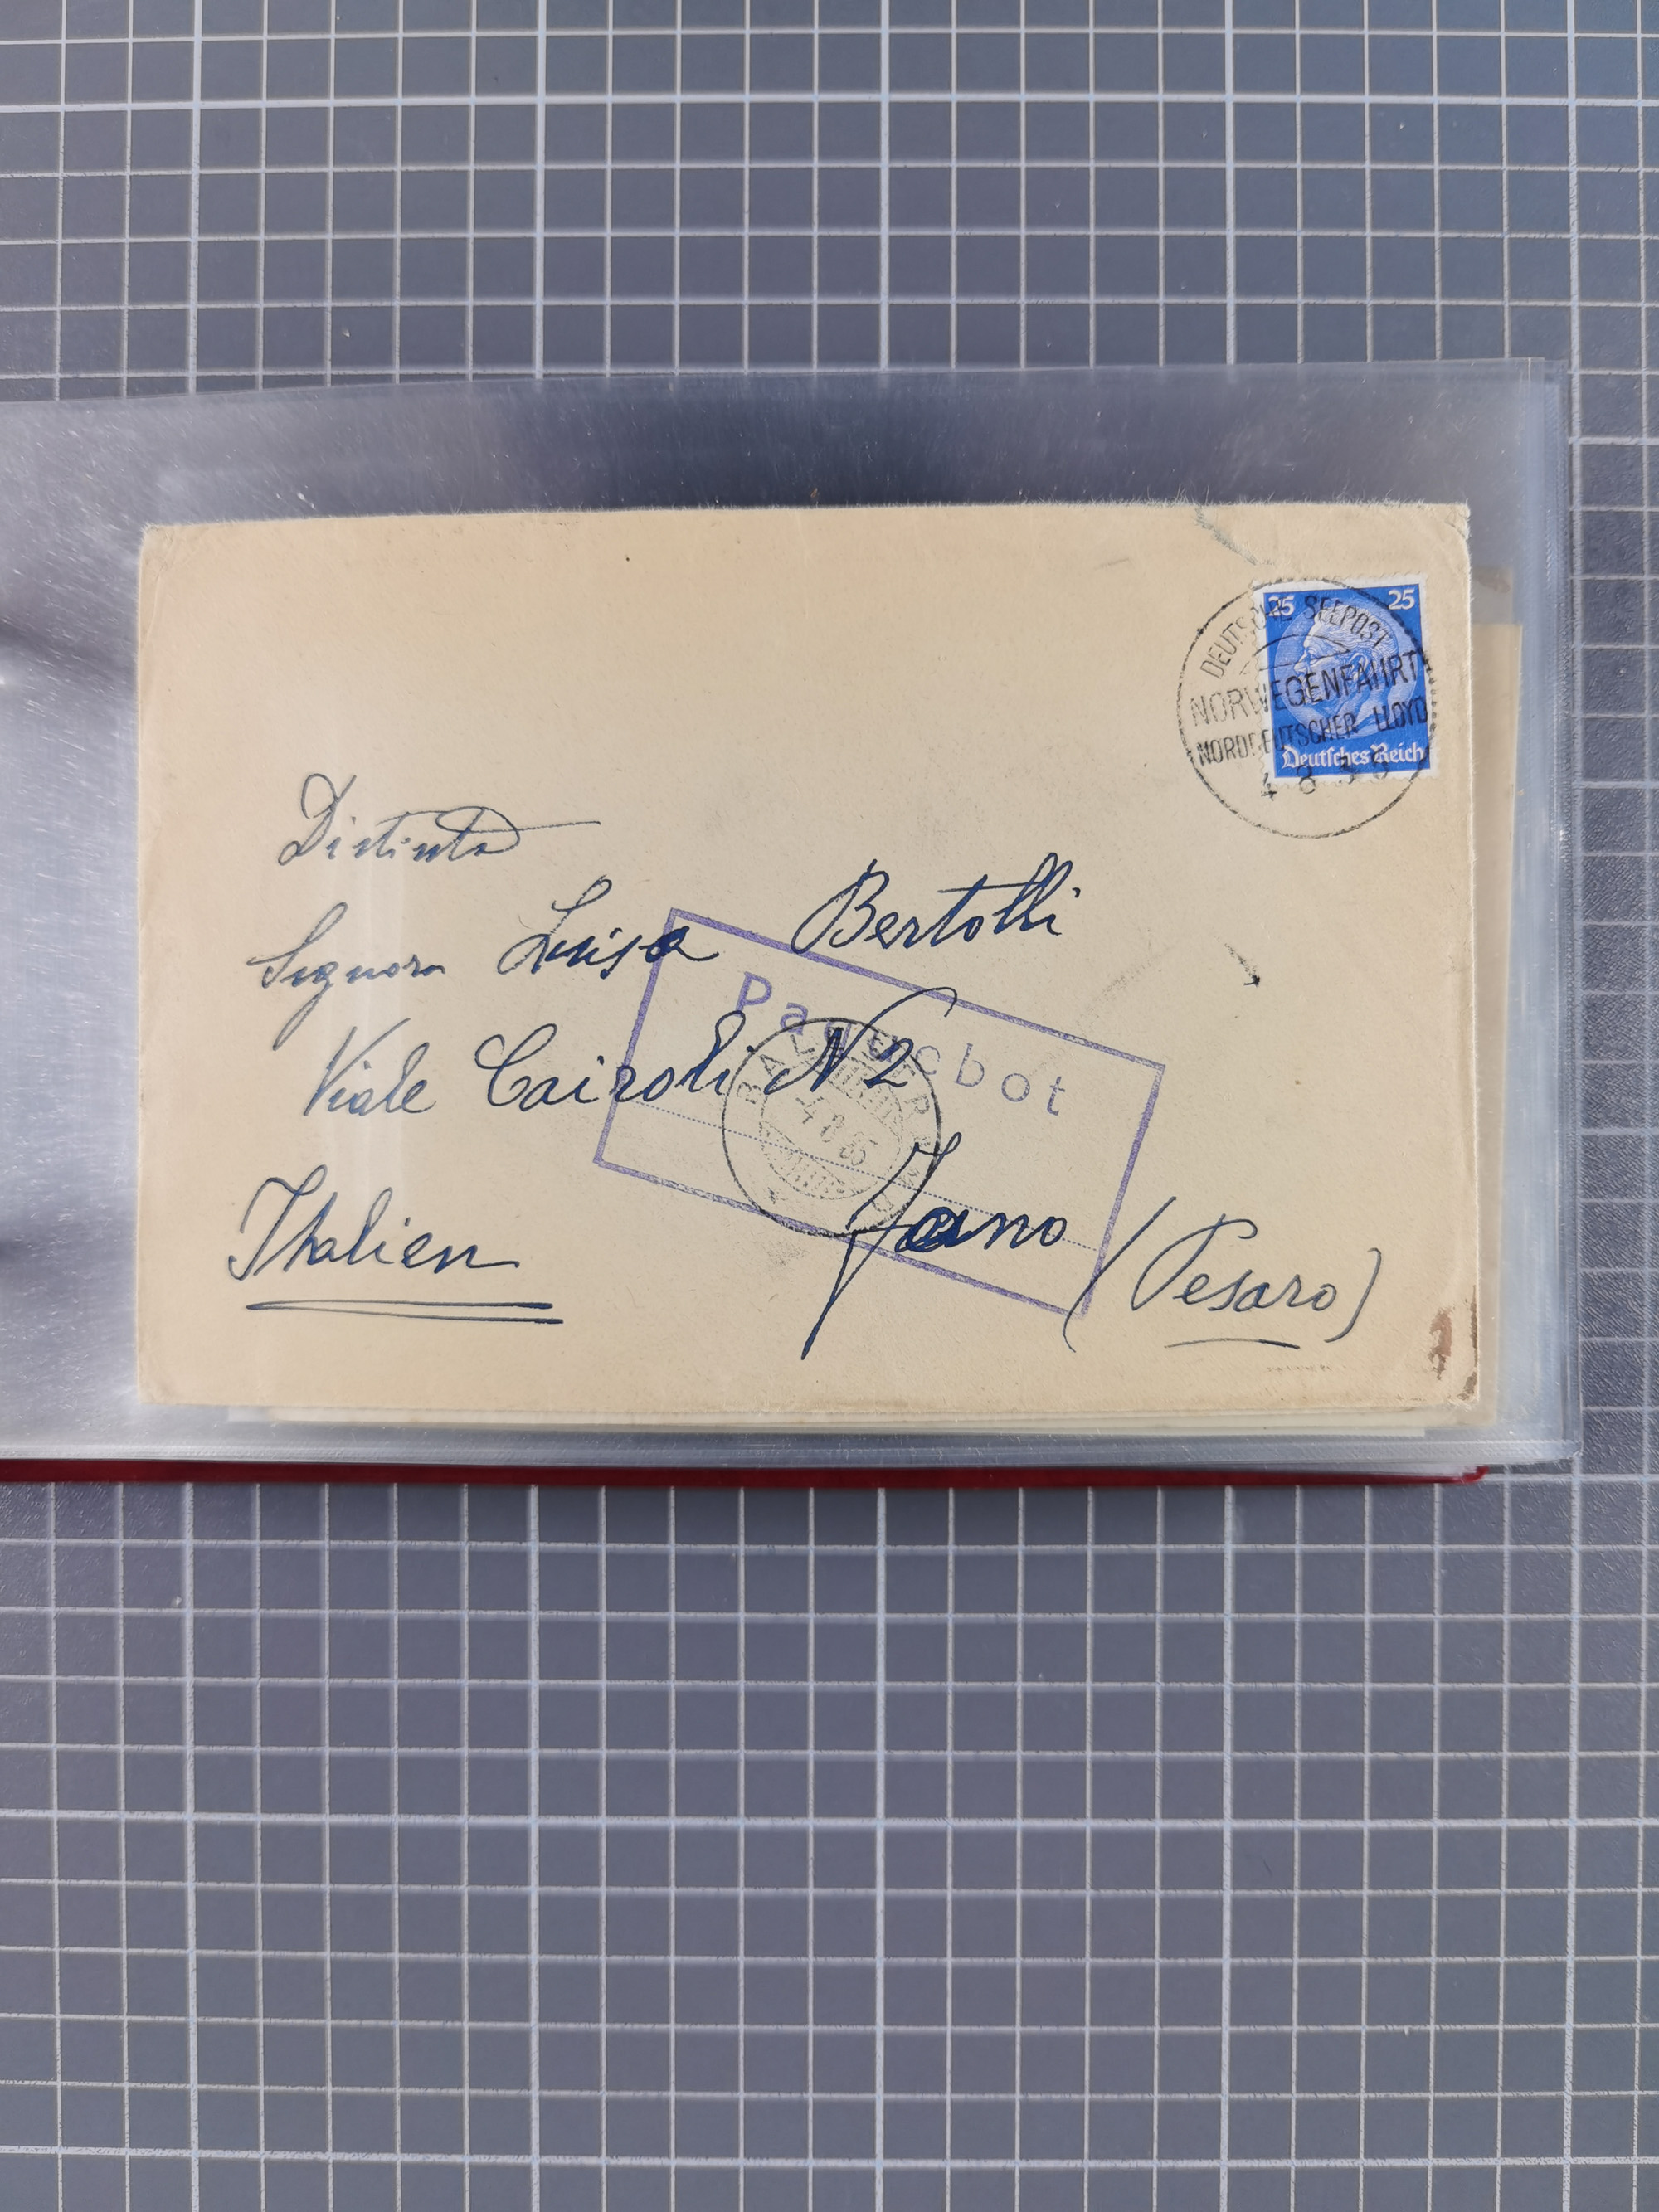 25 25
DEUTSCHE SEEPOST
NORWEGENFAHRT
NORDDEUTSCHER LLOYD
Deutsches Reich
4 8 35
Distinta
Signora Luisa Bertolli
Paquebot
Viale Cairoli N 2
4.8.35
Fano (Pesaro)
Italien